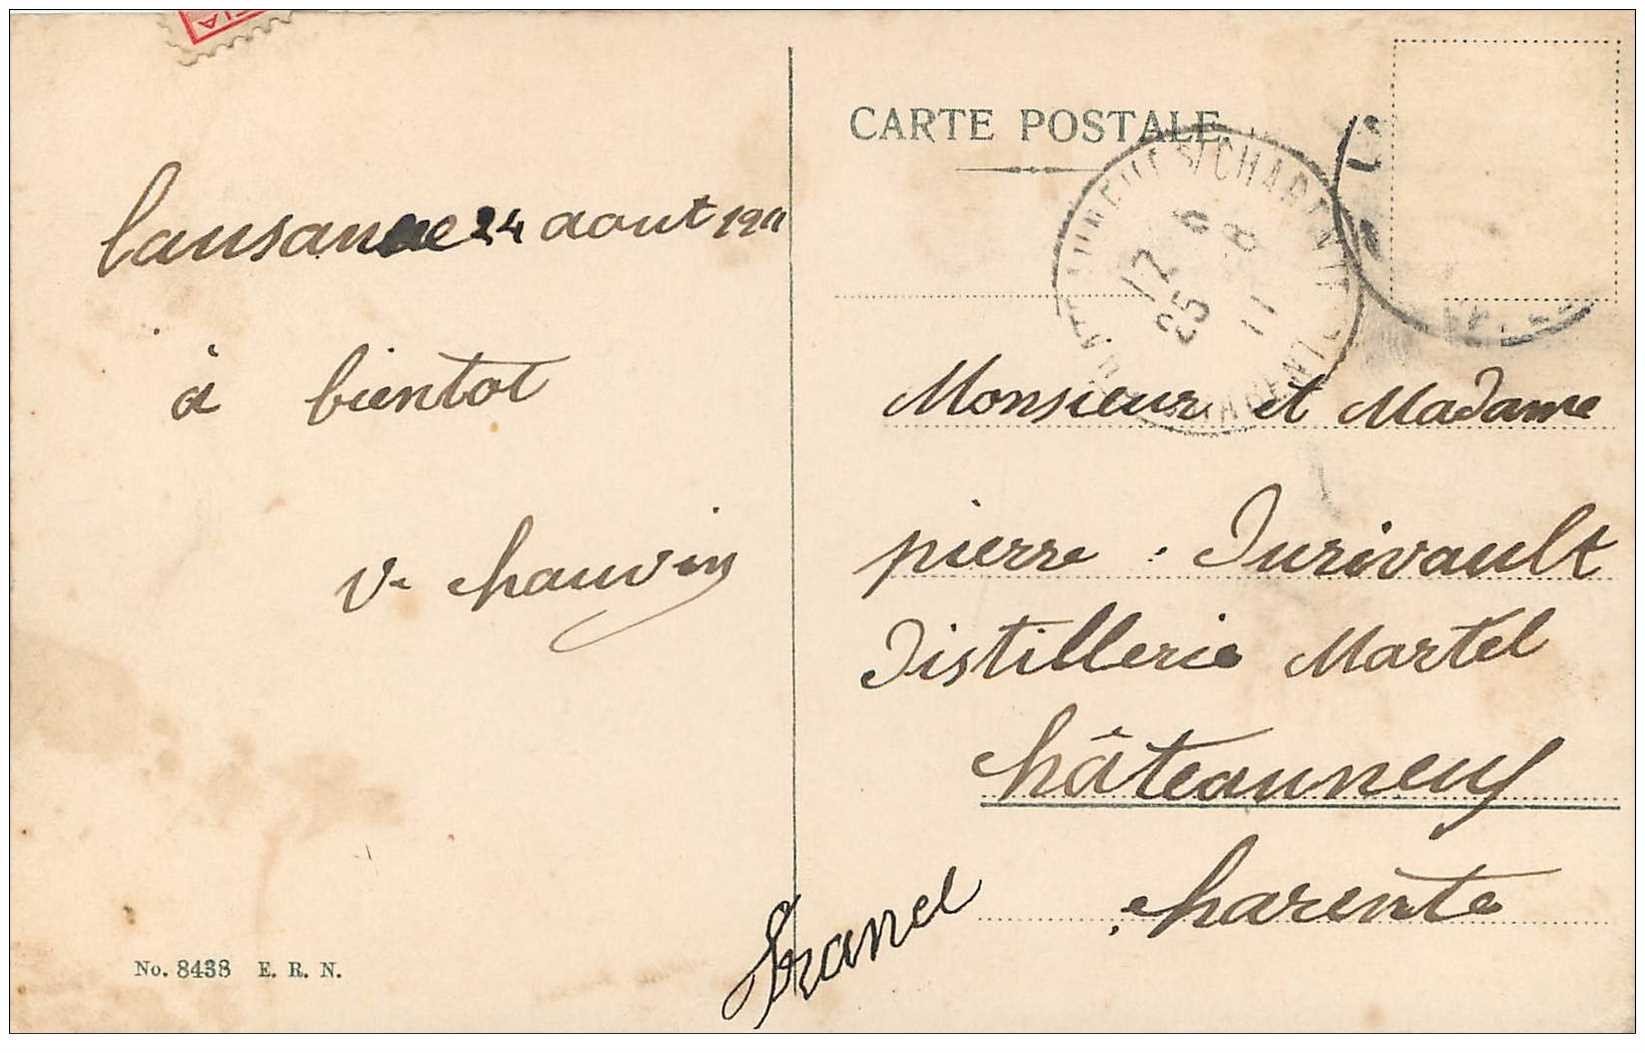 CARTE POSTALE
Lausanne 24 aout 1911
à bientot
V. chauvin
CHARENTE
17 6
25 8
11
CHARENTE
Monsieur et Madame
pierre Durivault
Distillerie Martel
châteauneuf
charente
france
No. 8438 E. R. N.